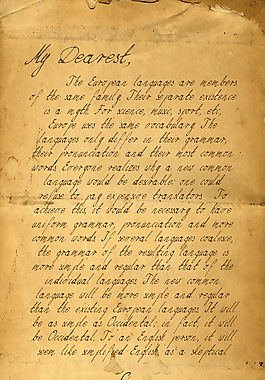 My Dearest,
The European languages are members
of the same family. Their separate existence
is a myth. For science, music, sport, etc,
Europe uses the same vocabulary. The
languages only differ in their grammar,
their pronunciation and their most common
words. Everyone realizes why a new common
language would be desirable: one could
refuse to pay expensive translators. To
achieve this, it would be necessary to have
uniform grammar, pronunciation and more
common words. If several languages coalesce,
the grammar of the resulting language is
more simple and regular than that of the
individual languages. The new common
language will be more simple and regular
than the existing European languages. It will
be as simple as Occidental; in fact, it will
be Occidental. To an English person, it will
seem like simplified English, as a skeptical